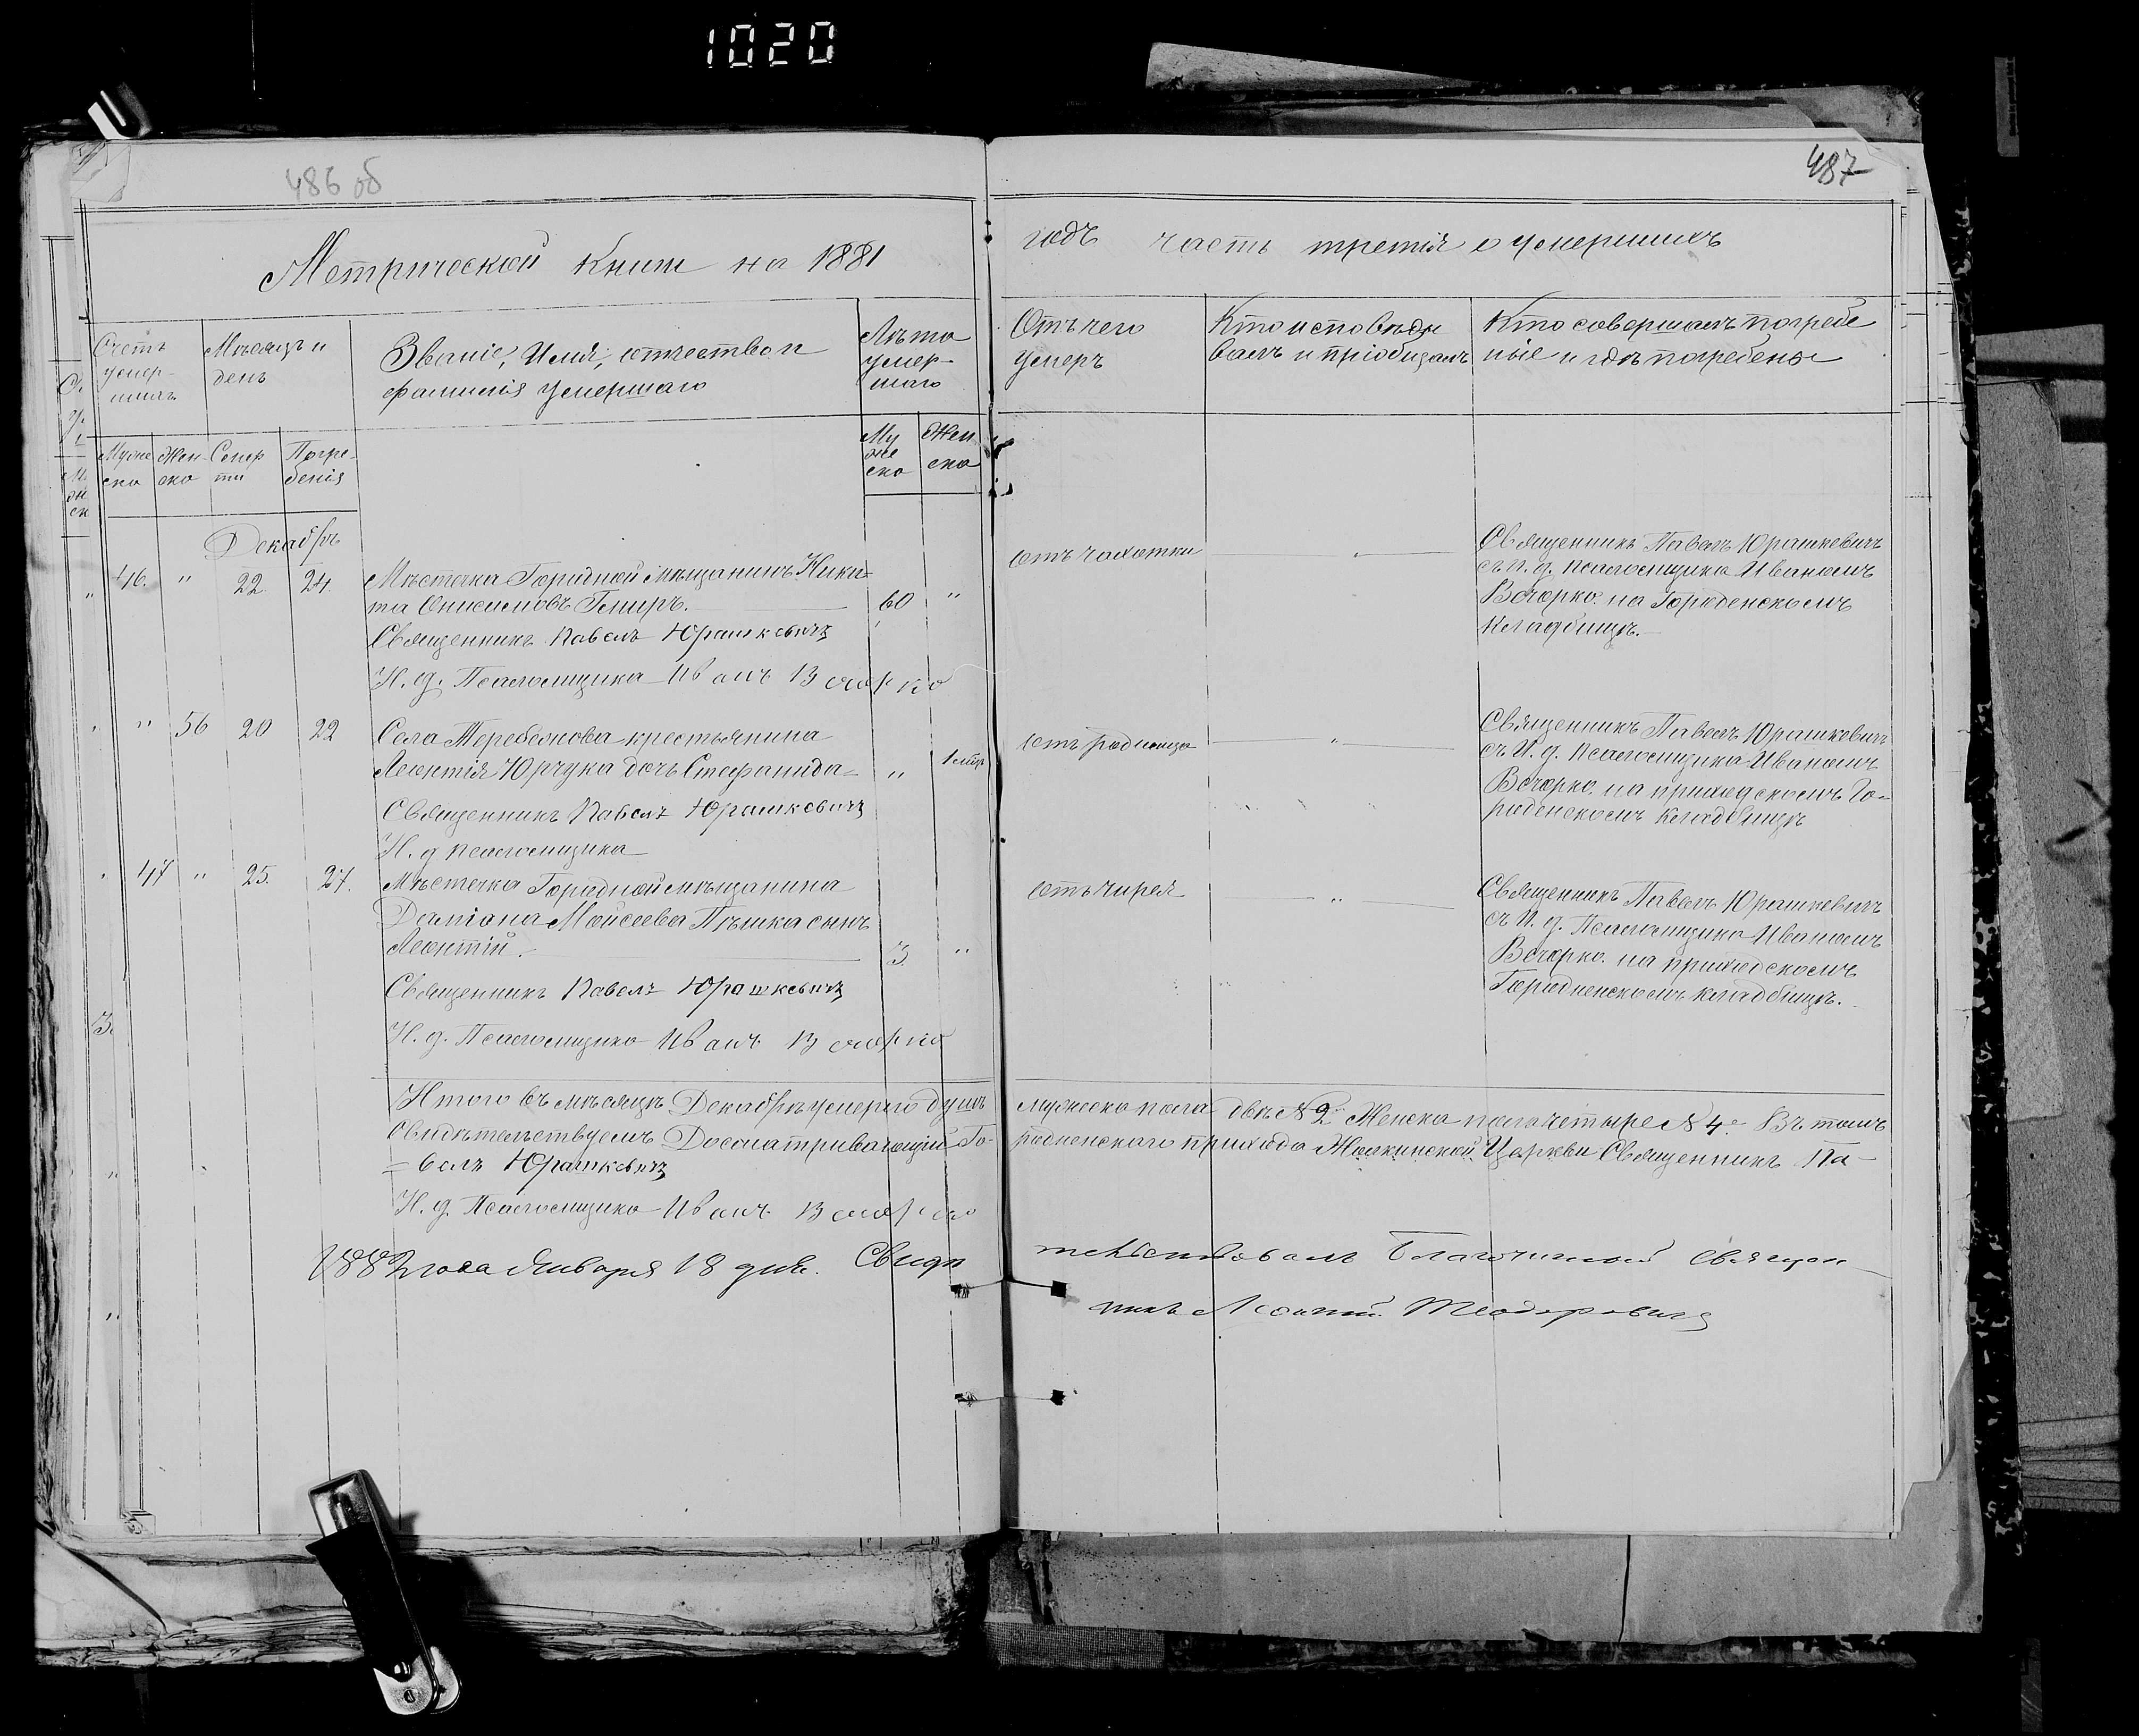 1020
486 об
487
Метрической книги на 1881 годъ часть третія о умершихъ
Счетъ умер-шихъ
Мѣсяцъ и день
Званіе, Имя, отчество и фамилія умершаго
Лѣта умер-шаго
Отъ чего умеръ
Кто исповѣды валъ и пріобщалъ
Кто совершалъ погребе ніе и гдѣ погребены
Муже ска
Жен-ска
Смер ти
Погре-бенія
Му же ска
Жен ска
Декабрь
46. " 22. 24. Мѣстечка Городной мѣщанинъ Ники=
та Онисимовъ Гмиръ. 60 "
Священникъ Павелъ Юрашкевичъ
И. д. Псаломщика Иванъ
отъ чахотки "
Священникъ Павелъ Юрашкевичъ
съ И. д. псаломщика Иваномъ
на Городенскомъ
кладбищѣ.
" 56 20 22 Села Теребежова крестьянина
Леонтія Юрчука дочь Стефанида= " 1
Священникъ Павелъ Юрашкевичъ
И. д псаломщика
отъ родимца "
Священникъ Павелъ Юрашкевичъ
съ И. д. псаломщика Иваномъ
на приходскомъ Го=
роденскомъ кладбищѣ
47 " 25. 27. Мѣстечка Городной мѣщанина
Даміана Мойсеева Пѣшка сынъ
Леонтій. 3. "
Священникъ Павелъ Юрашкевичъ
И. д. Псаломщика Иванъ
отъ чирея "
Священникъ Павелъ Юрашкевичъ
съ И. д. Псаломщика Иваномъ
на приходскомъ
Городненскомъ кладбищѣ.
Итого въ мѣсяцѣ Декабрѣ умерло душъ мужеска пола двѣ № 2 Женска пола четыре № 4. Въ томъ
свидѣтельствуемъ Досматривающій Го-родненскаго прихода Церкви Священникъ Па-
=велъ Юрашкевичъ
И. д. Псаломщика Иванъ
1882 года Января 18 дня. Свидѣ тельствовалъ Благочинный Священ
никъ Теодоровичъ